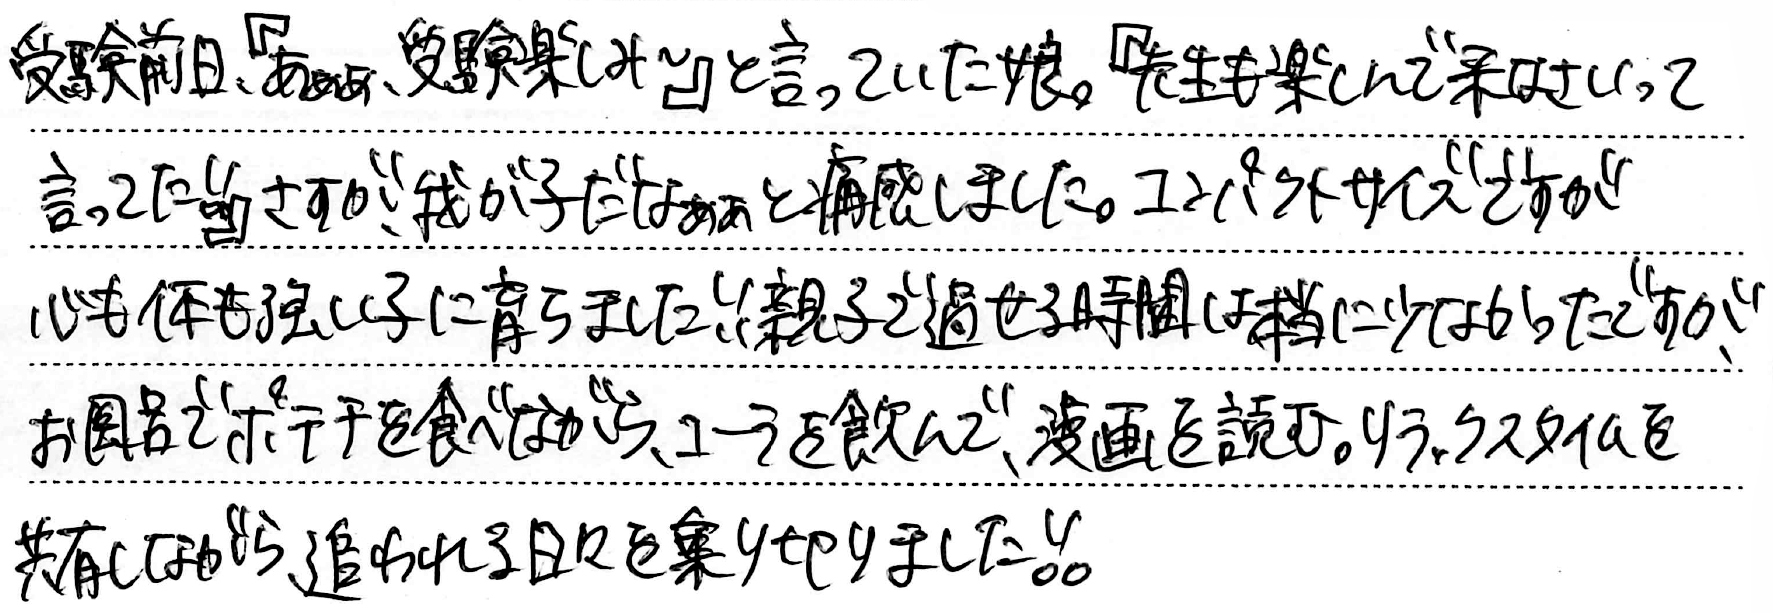 受験前日、『あぁぁぁ、受験楽しみ〜』と言っていた娘。『先生も楽しんで来なさいって
言ってた!!』さすが、我が子だなぁぁぁと痛感しました。コンパクトサイズですが
心も体も強い子に育ちました!!親子で過せる時間は本当に少なかったですが、
お風呂でポテチを食べながら、コーラを飲んで、漫画を読む。リラックスタイムを
共有しながら、追われる日々を乗りきりました!!